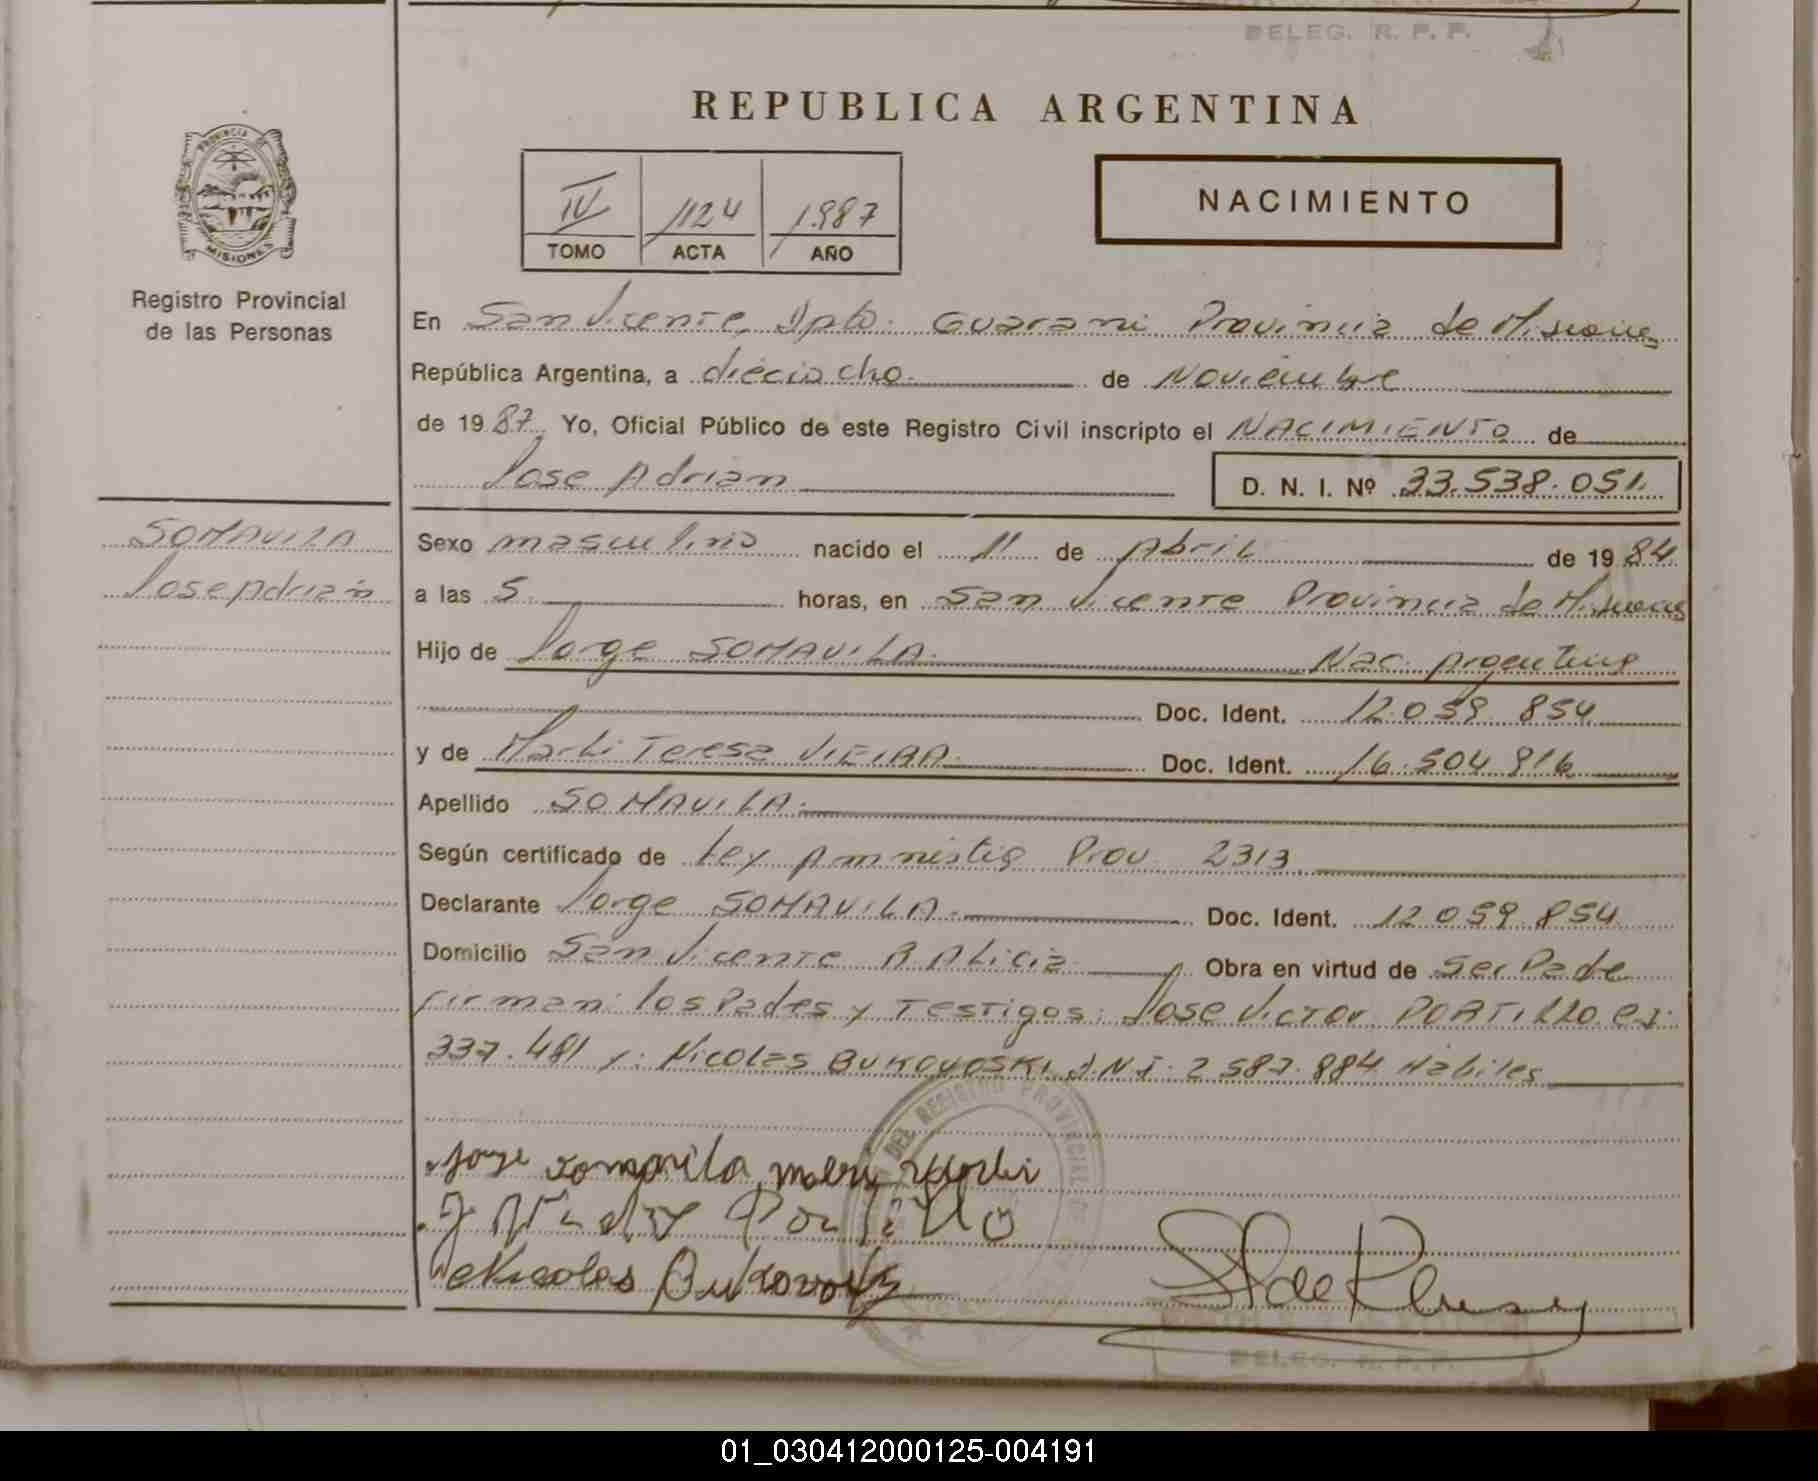 DELEG. R. P. P.
REPUBLICA ARGENTINA
PROVINCIA DE
MISIONES
Registro Provincial
de las Personas
IV 1124 1.987
TOMO ACTA AÑO
NACIMIENTO
En San Vicente, Dpto. Guarani Provincia de Misiones
República Argentina, a dieciocho. de Noviembre
de 1987. Yo, Oficial Público de este Registro Civil inscripto el NACIMIENTO de
Jose Adrian D. N. I. Nº 33.538.051.
SOMAVILA
Jose Adrian
Sexo masculino nacido el 11 de Abril de 1984
a las 5. horas, en San Vicente Provincia de Misiones
Hijo de Jorge SOMAVILA. Nac. Argentina
Doc. Ident. 12.059.854
y de Marli Teresa VIEIRA. Doc. Ident. 16.504.816
Apellido SOMAVILA.
Según certificado de Ley Amnistia Prov. 2313.
Declarante Jorge SOMAVILA. Doc. Ident. 12.059.854
Domicilio San Vicente B Alicia Obra en virtud de Ser Padre
firman: los Padres y Testigos: Jose Victor PORTILLO C.I:
337.481 y: Nicolas BUKOVOSKI D.N.I: 2.587.884 Habiles
DEL REGISTRO PROVINCIAL DE
Jorge Somavila
Portillo
Nicolas
DELEG. R. P. P.
01_030412000125-004191